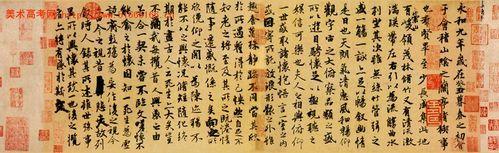 美术高考网
永和九年歲在癸丑暮春之初會
于會稽山陰之蘭亭脩稧事
也群賢畢至少長咸集此地
有崇山峻領茂林脩竹又有清流激
湍暎帶左右引以為流觴曲水
列坐其次雖無絲竹管弦之
盛一觴一詠亦足以暢敘幽情
是日也天朗氣清惠風和暢仰
觀宇宙之大俯察品類之盛
所以遊目騁懷足以極視聽之
娛信可樂也夫人之相與俯仰
一世或取諸懷抱悟言一室之內
或因寄所託放浪形骸之外雖
趣舍萬殊靜躁不同當其欣
於所遇蹔得於己怏然自足不
知老之將至及其所之既惓情
隨事遷感慨係之矣向之所
欣俛仰之間以為陳跡猶不
能不以之興懷況脩短隨化終
期於盡古人云死生亦大矣豈
不痛哉每攬昔人興感之由
若合一契未嘗不臨文嗟悼不
能喻之於懷固知一死生為虛
誕齊彭殤為妄作後之視今
亦由今之視昔悲夫故列
敘時人錄其所述雖世殊事
異所以興懷其致一也後之攬
者亦將有感於斯文